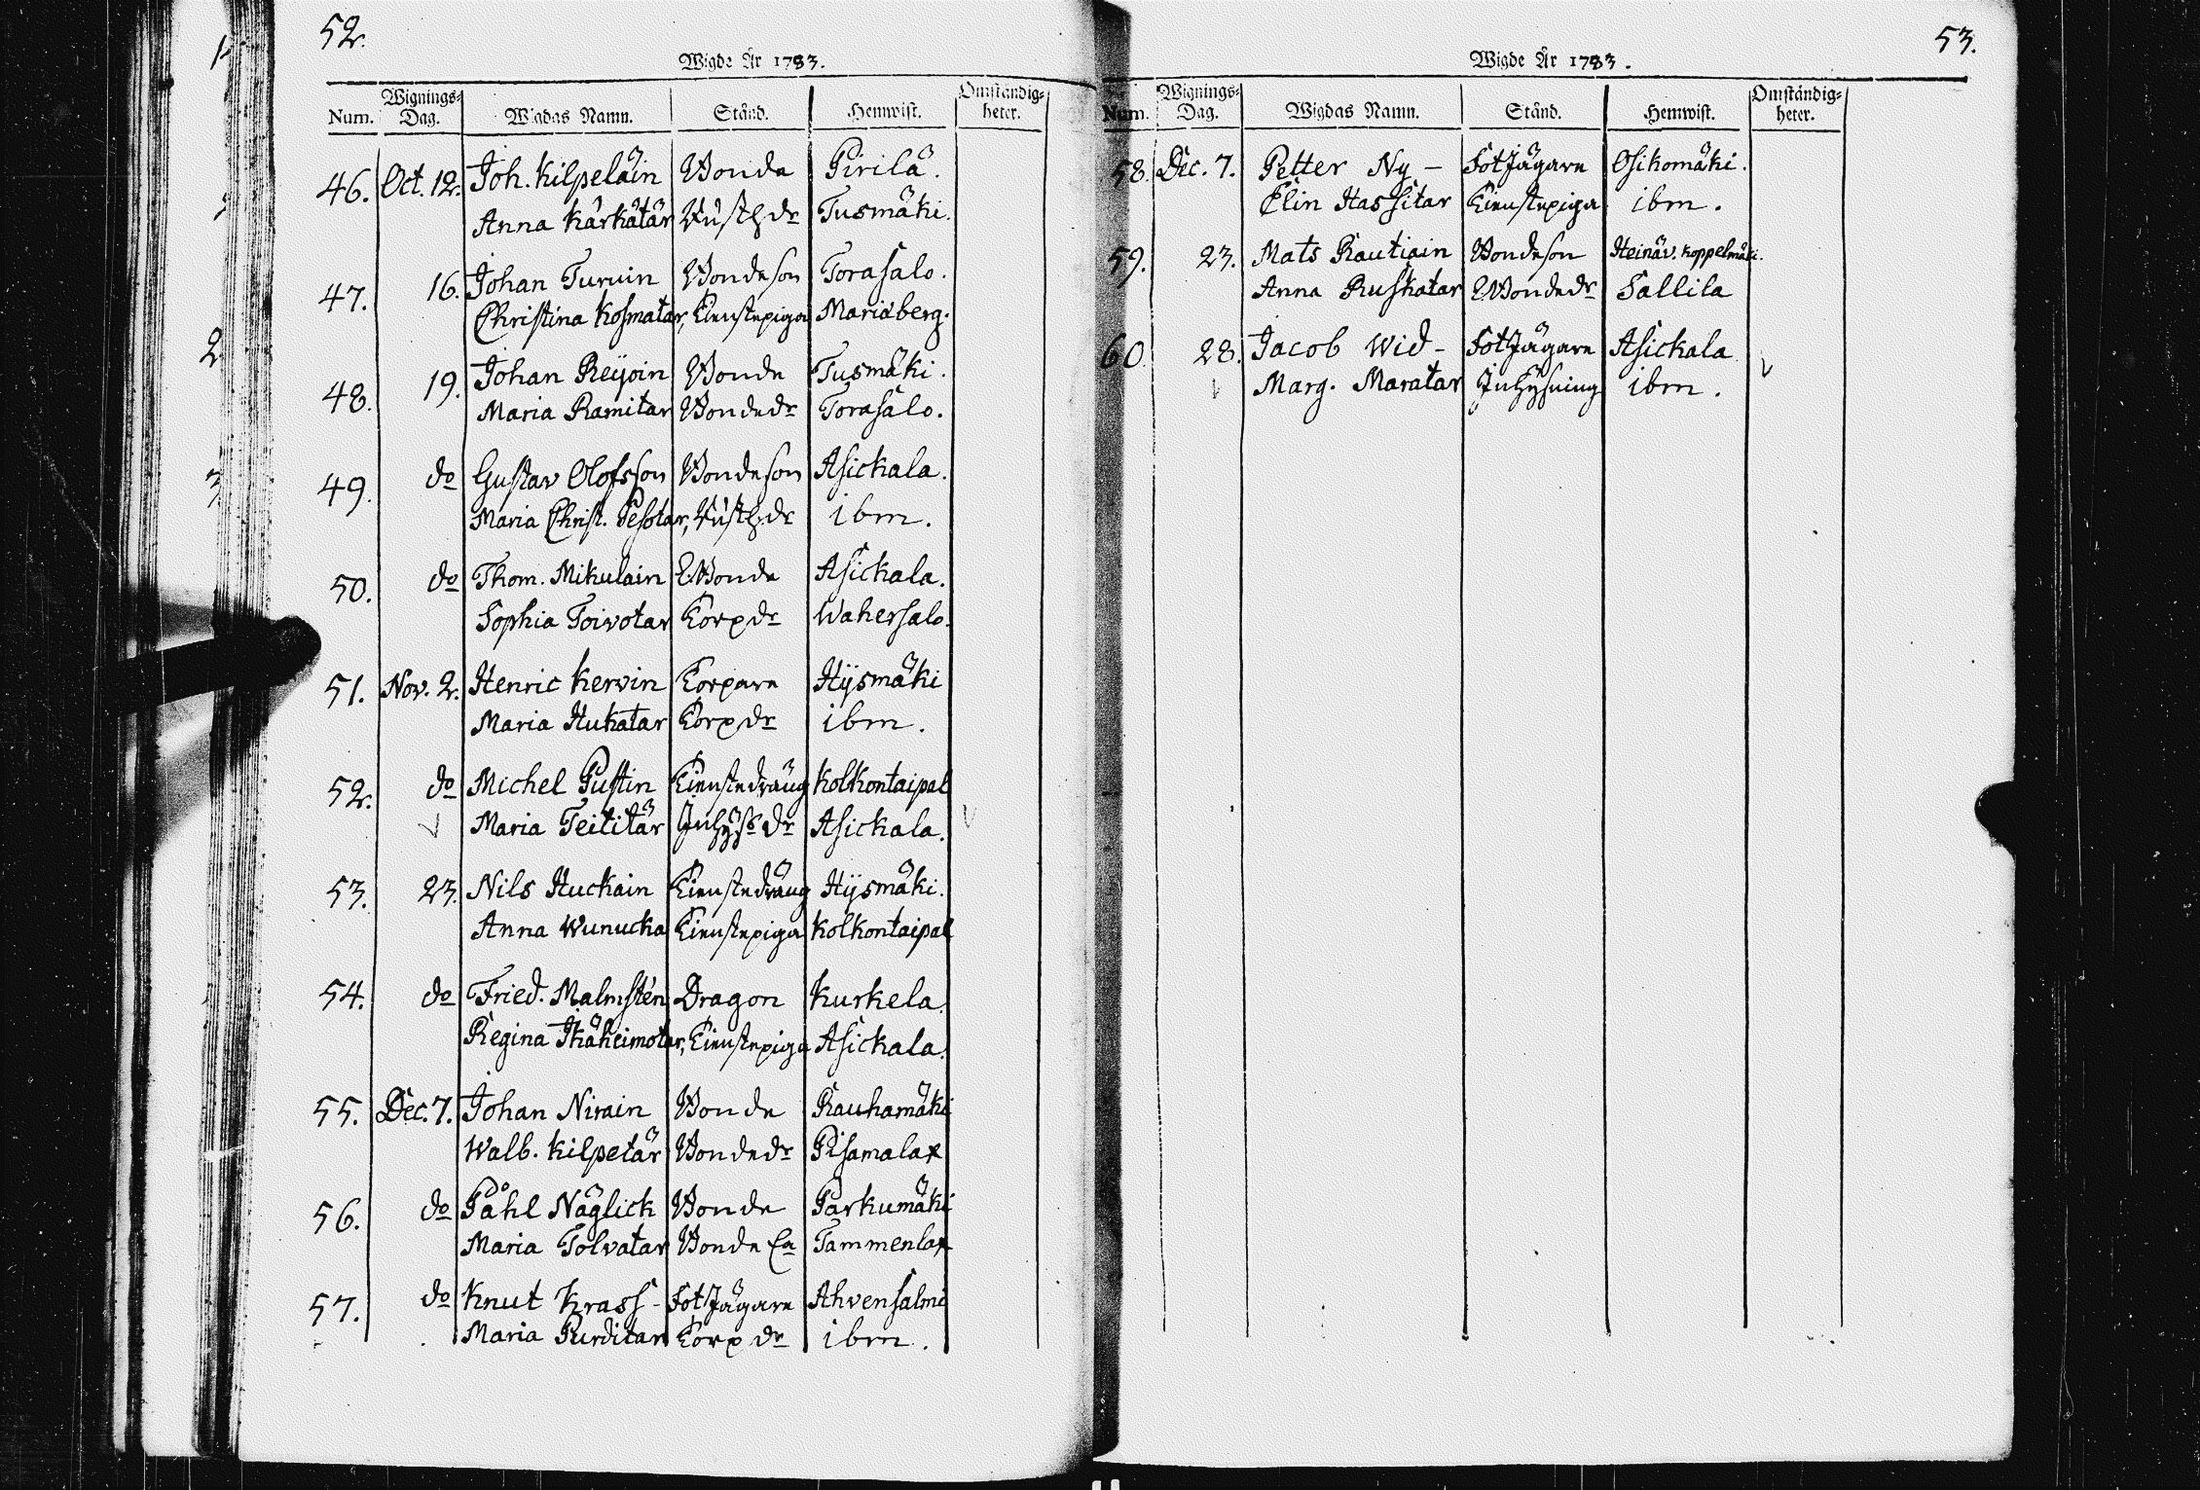 52.
Wigde År 1783.
Num. Wignings-Dag. Wigdas Namn. Stånd. Hemwist. Omständig-heter.
46. Oct. 12. Joh. Kilpeläin Bonde Pirilä.
Anna Kärkätär Rusth dr Tusmäki.
47. 16. Johan Turuin Bondeson Torasalo.
Christina Kosmatar, Tienstepiga Mariæberg.
48. 19. Johan Reijoin Bonde Tusmäki.
Maria Ramitar Bondedr Torasalo.
49. do Gustav Olofsson Bondeson Asickala.
Maria Christ. Pesotar, Rusth.dr ibm.
50. do Thom. Mikulain Bonde Asickala.
Sophia Toivotar Torpdr Wahersalo.
51. Nov. 2. Henric Kervin Torpare Hysmäki
Maria Hukatar Torpdr ibm.
52. do Michel Pustin Tienstedräng Kolkontaipal
Maria Teititär Inhyss dr Asickala.
53. 23. Nils Huckain Tienstedräng Hysmäki.
Anna Wunucka Tienstepiga Kolkontaipal
54. do Fried. Malmstén Dragon Kurkela.
Regina Ikäheimotar, Tienstepiga Asickala.
55. Dec. 7. Johan Nirain Bonde Rauhamäki
Walb. Kilpetär Bondedr Pisamalax
56. do Påhl Näglick Bonde Parkumäki
Maria Tolvatar Bonde Tammenlax
57. do Knut Krass - Fot Jägare Ahvensalmi
Maria Purditar Torp dr ibm.
53.
Wigde År 1783.
Num. Wignings-Dag. Wigdas Namn. Stånd. Hemwist. Omständig-heter.
58. Dec. 7. Petter Ny - Fot Jägare Osikomäki.
Elin Hassitar Tienstepiga ibm.
59. 23. Mats Rautiain Bondeson Heinäv. Koppelmäki.
Anna Ruskatar Bondedr Sallila
60. 28. Jacob Wid - Fot Jägare Asickala
Marg. Maratar Inhysning ibm.